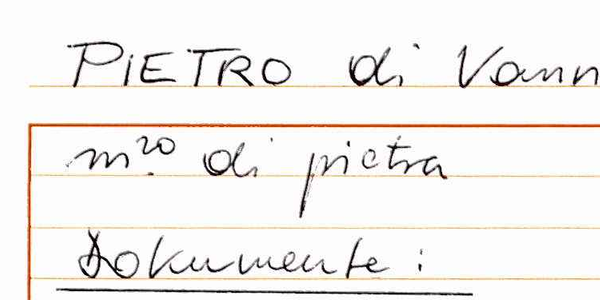 PIETRO di Vann
m.zo di pietra
Dokumente: